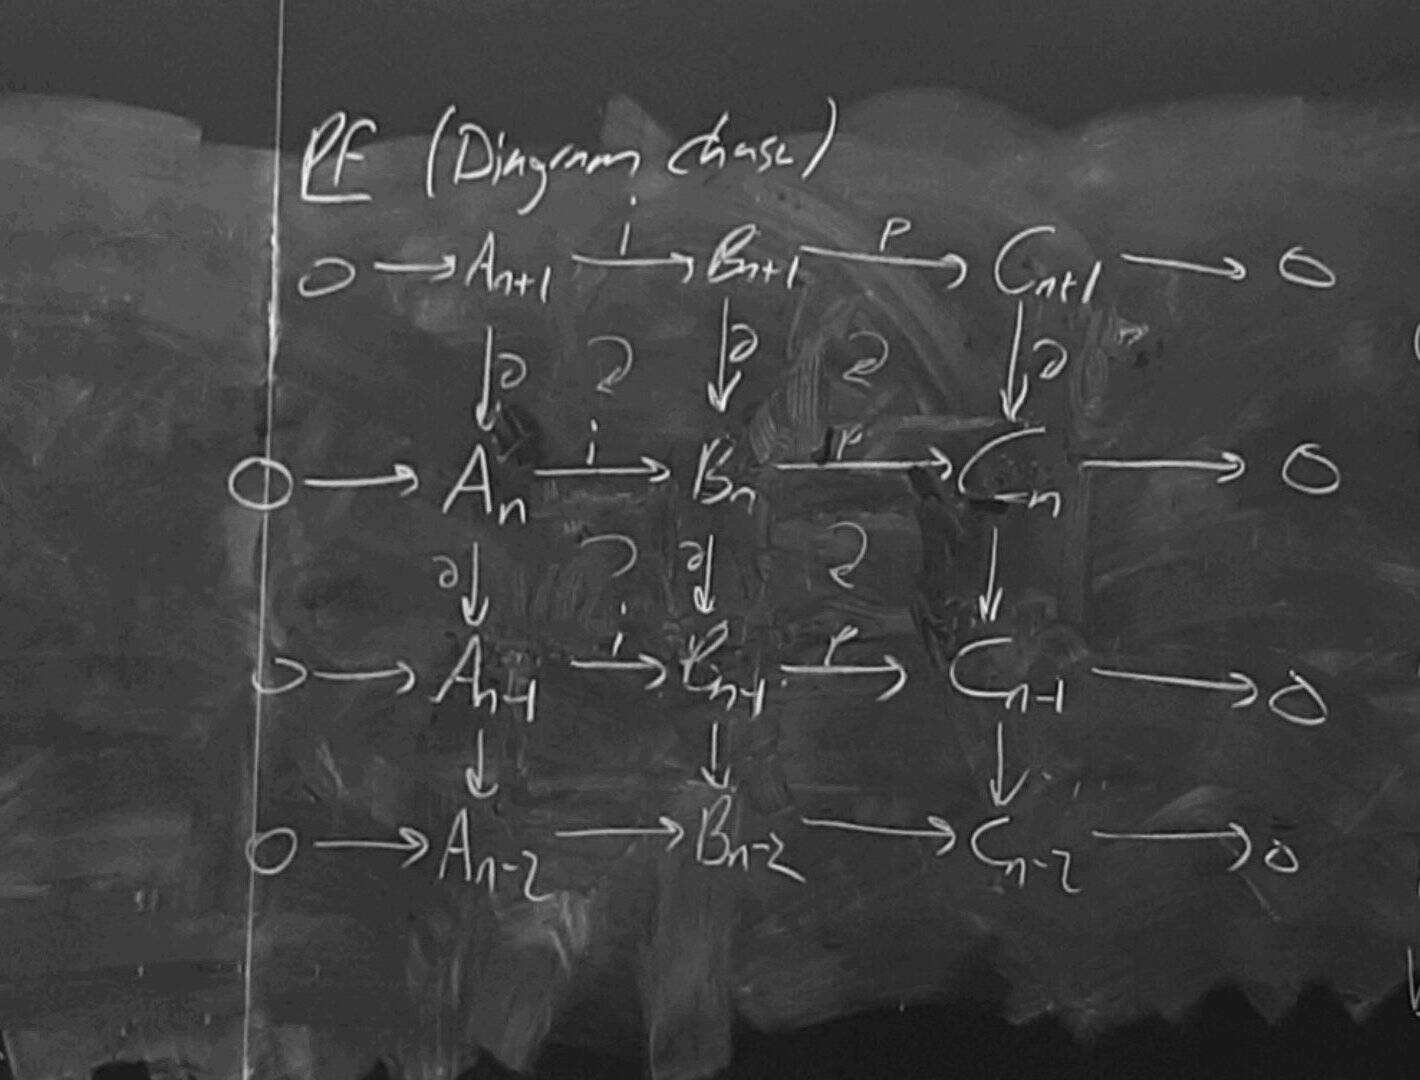 Pf (Diagram Chase)
0 → A_{n+1} —i→ B_{n+1} —p→ C_{n+1} → 0
↓∂ ↓∂ ↓∂
0 → A_n —i→ B_n —p→ C_n → 0
∂↓ ∂↓ ↓
0 → A_{n-1} —i→ B_{n-1} —p→ C_{n-1} → 0
↓ ↓ ↓
0 → A_{n-2} → B_{n-2} → C_{n-2} → 0